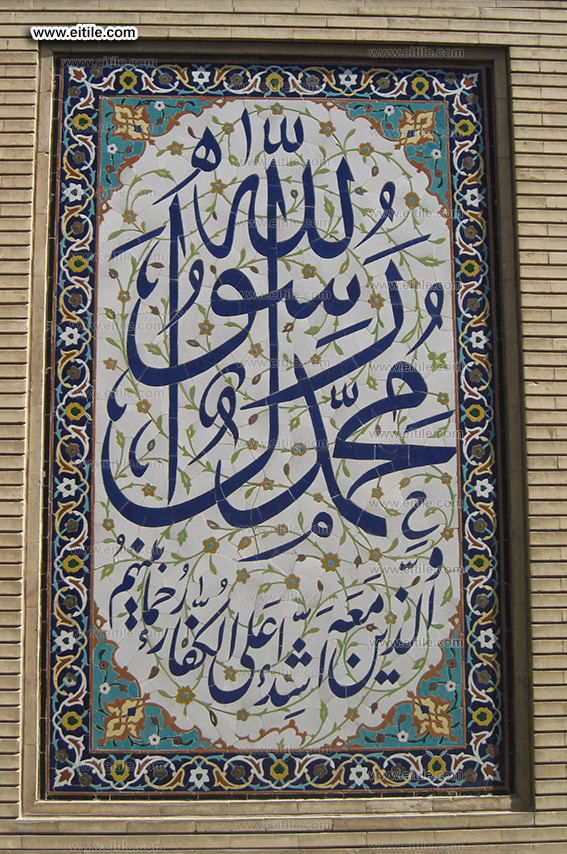 www.eitile.com
محمد رسول الله
والذين معه اشداء على الكفار رحماء بينهم